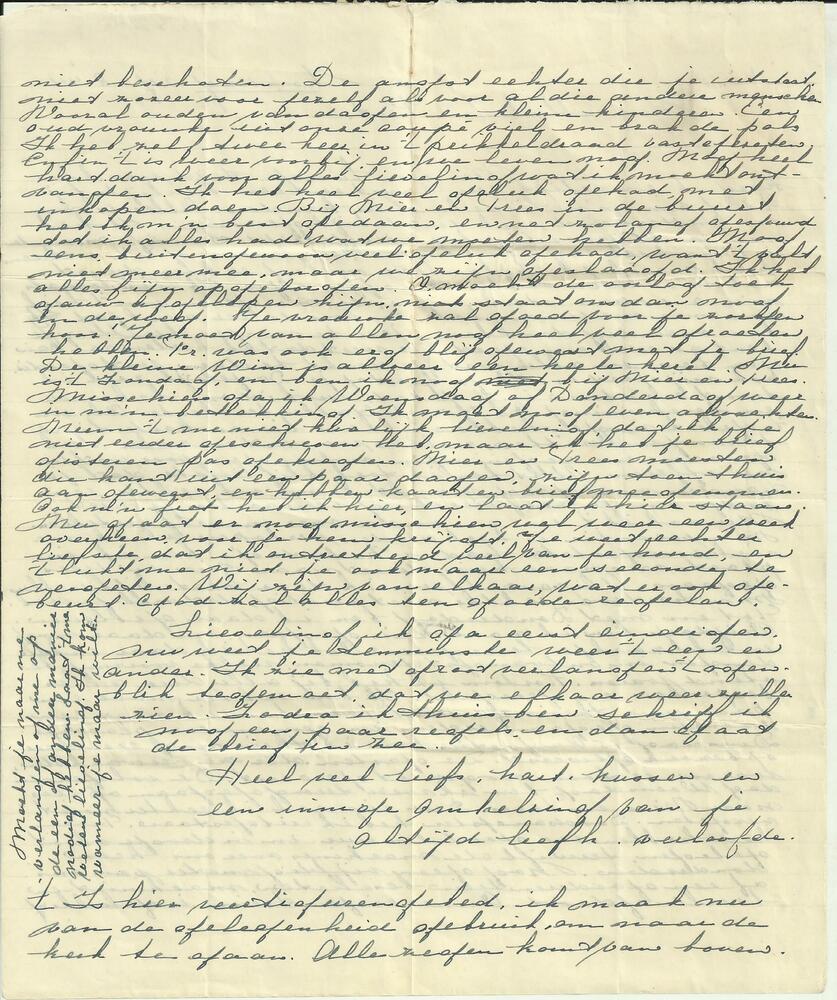 niet beschoten. De angst echter die je uitstaat
niet zozeer voor jezelf als voor al die andere menschen
Vooral ouden van dagen en kleine kinderen. Een
oud vrouwtje uit onze coupé viel en brak de pols
Ik heb zelf twee keer in 't prikkeldraad vastgezeten,
Enfin 't is weer voorbij, en we leven nog. Nog heel
hart. dank voor alles lieveling wat ik mocht ont-
vangen. Ik heb heel veel geluk gehad met
inkopen doen. Bij Mies en Trees in de buurt
heb ik m'n best gedaan, en net zolang gesjouwd
dat ik alles had wat we moesten hebben. Nog
eens, buitengewoon veel geluk gehad, want 't valt
niet meer mee, maar we zijn geslaagd. Ik heb
alles fijn opgeborgen. O, mocht de oorlog toch
gauw afgelopen zijn, niets staat ons dan nog
in de weg. Je vrouwtje zal goed voor je zorgen
hoor! Je moet van allen nog heel veel groeten
hebben. Pr. was ook erg blij geweest met je brief.
De kleine Wim is alweer een hele kerel. Nu
is 't Zondag, en ben ik nog bij Mies en Trees.
Misschien ga ik Woensdag of Donderdag weer
in m'n betrekking. Ik moet nog even afwachten.
Neem 't me niet kwalijk lieveling dat ik je
niet eerder geschreven heb, maar ik heb je brief
gisteren pas gekregen. Mies en Trees moesten
die kant uit een paar dagen, zijn toen thuis
aan geweest, en hebben kaart en brief meegenomen.
Ook m'n fiets heb ik hier, en laat ik hier staan.
Nu gaat er nog misschien wel weer een week
overheen, voor je hem krijgt. Je weet echter
liefste, dat ik ontzettend veel van je houd, en
't lukt me niet je ook maar een seconde te
vergeten. Wij zijn van elkaar, wat er ook ge-
beurt. God zal alles ten goede regelen.
Lieveling ik ga eerst eindigen.
nu weet je tenminste weer 't een en
ander. Ik zie met groot verlangen 't ogen-
blik tegemoet, dat we elkaar weer zullen
zien. Zodra ik thuis ben schrijf ik
nog een paar regels, en dan gaat
de brief in zee.
Heel veel liefs, hart. kussen en
een innige omhelzing van je
altijd liefh. verloofde.
't Is hier veertigurengebed, ik maak nu
van de gelegenheid gebruik, om naar de
kerk te gaan. Alle zegen komt van boven.
Mocht je naar me
verlangen of me op
de een of andere manier
nodig hebben, laat 't me
weten lieveling. Ik kom
wanneer je maar wilt.